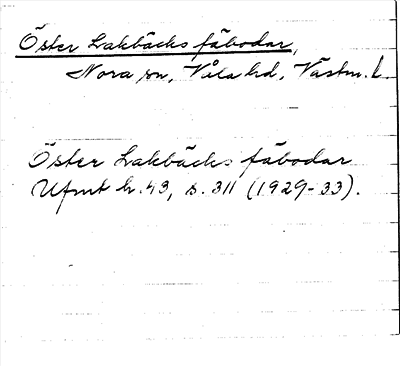 Öster Lakbäcks fäbodar,
Nora sn, Våla hd, Västm. L.
Öster Lakbäcks fäbodar
Ufmt h. 43, s. 311 (1929-33).